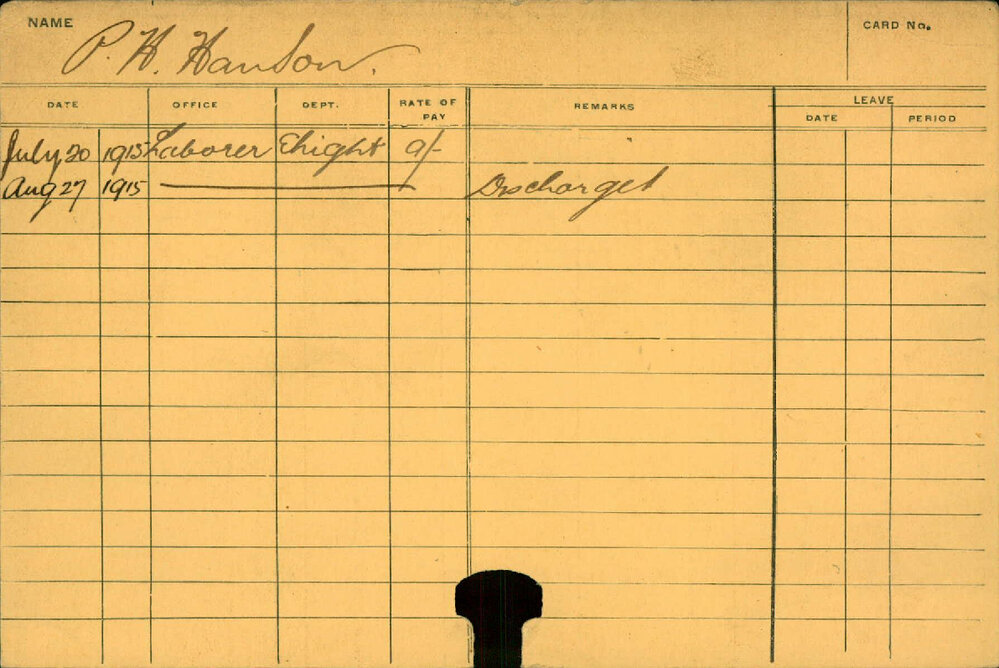 NAME P. H. Hanson. CARD No.
DATE OFFICE DEPT. RATE OF PAY REMARKS LEAVE
DATE PERIOD
July 20 1915 Laborer 9/-
Aug 27 1915 Discharged